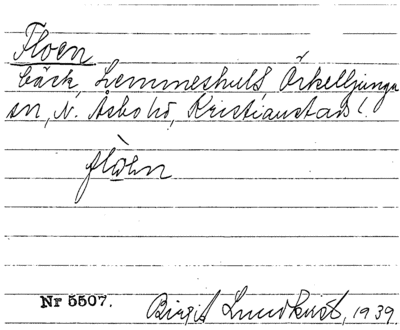 Floen
bäck, Lemmeshult, Örkelljunga
sn, N. Åsbo hd, Kristianstads l.
flòen
Nr 5507.
Birgit Lundkvist, 1939.